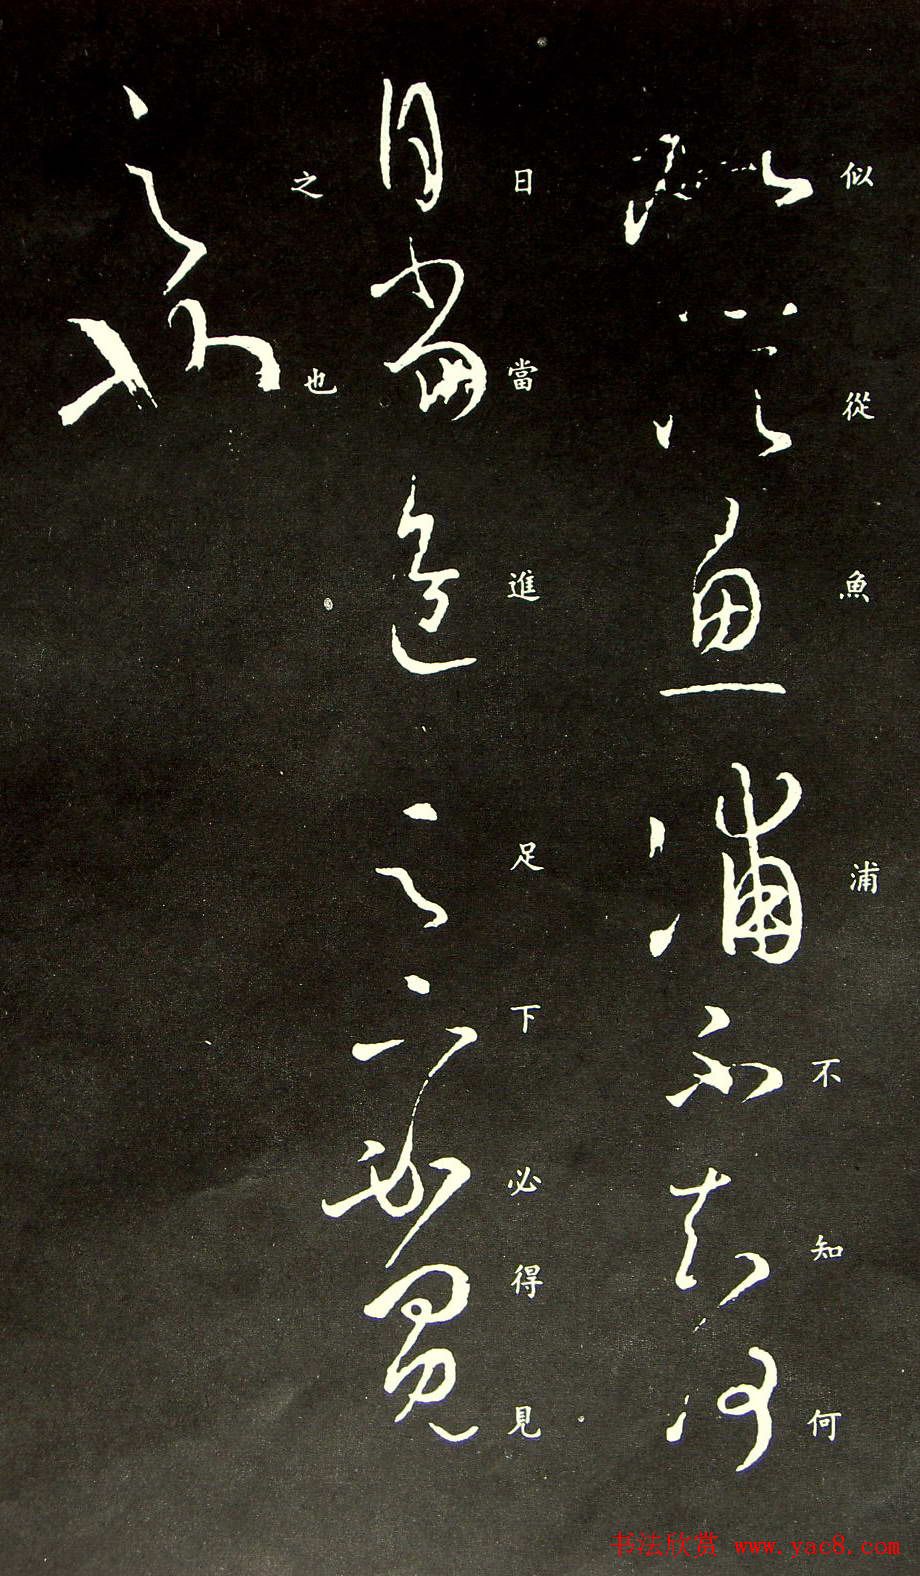 似從魚浦不知何
日當進足下必得見
之也
书法欣赏 www.yac8.com